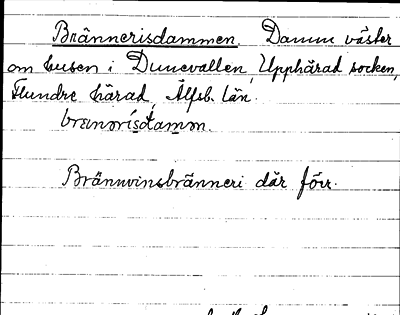 Brännerisdammen. Damm väster
om husen i Dunevallen, Upphärad socken,
Flundre härad, Älfsb. län.
Brännvinsbränneri där förr.